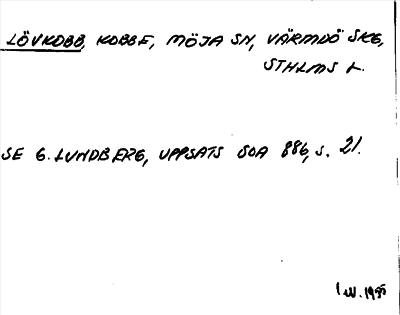 LÖVKOBB, KOBBE, MÖJA SN, VÄRMDÖ SKG,
STHLMS L.
SE G. LUNDBERG, UPPSATS SOA 886, S. 21.